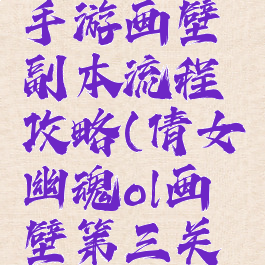 手游画壁
副本流程
攻略(倩女
幽魂ol画
壁第三关